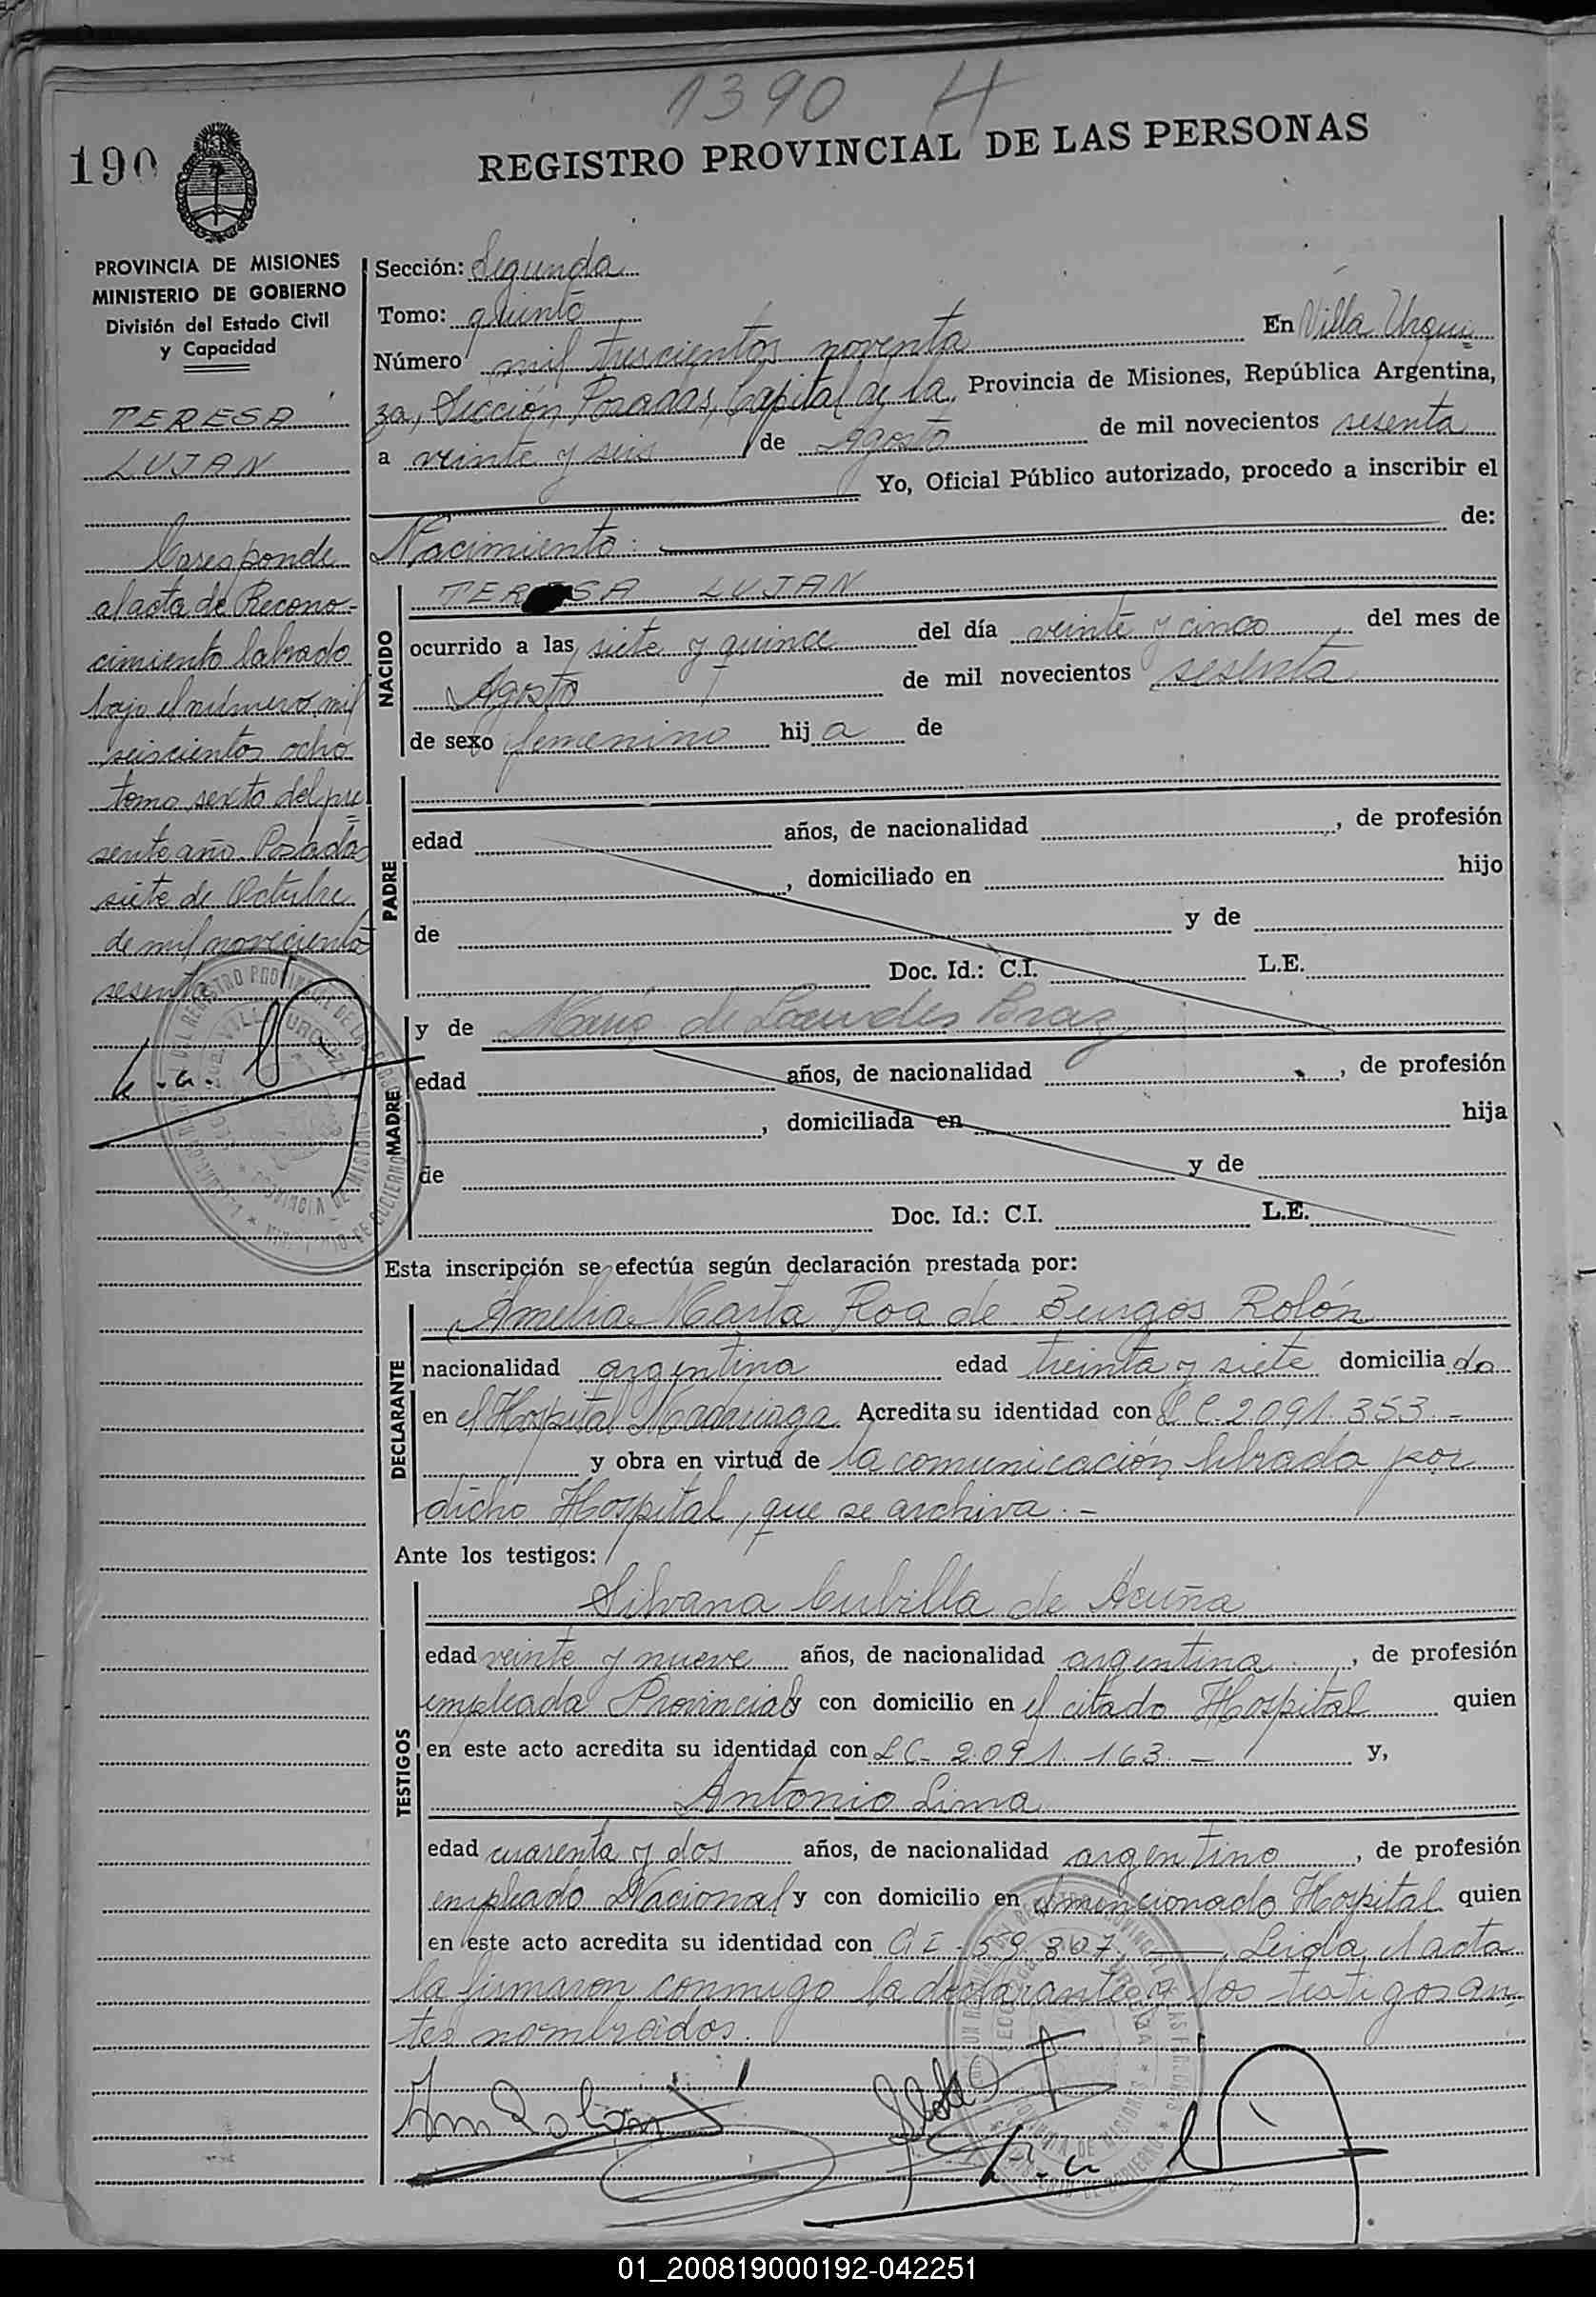 1390 H
190
REGISTRO PROVINCIAL DE LAS PERSONAS
PROVINCIA DE MISIONES
MINISTERIO DE GOBIERNO
División del Estado Civil
y Capacidad
TERESA
LUJAN
Corresponde
al acta de Recono-
cimiento labrado
bajo el número mil
seiscientos ocho
tomo sexto del pre
sente año. Posadas
siete de Octubre
de mil novecientos
sesenta
Sección: Segunda
Tomo: quinto
Número mil trescientos noventa En Villa Urqui
za, Sección Posadas, Capital de la Provincia de Misiones, República Argentina,
a veinte y seis de Agosto de mil novecientos sesenta
Yo, Oficial Público autorizado, procedo a inscribir el
Nacimiento: de:
NACIDO
TERESA LUJAN
ocurrido a las siete y quince del día veinte y cinco del mes de
Agosto de mil novecientos sesenta
de sexo femenino hija de
PADRE
edad años, de nacionalidad , de profesión
, domiciliado en hijo
de y de
Doc. Id.: C.I. L.E.
MADRE
y de María de Lourdes Braz
edad años, de nacionalidad , de profesión
, domiciliada en hija
de y de
Doc. Id.: C.I. L.E.
Esta inscripción se efectúa según declaración prestada por:
DECLARANTE
Amelia Marta Roa de Burgos Rolón
nacionalidad argentina edad treinta y siete domiciliada
en el Hospital Madariaga Acredita su identidad con L C 2091.353.-
y obra en virtud de la comunicación librada por
dicho Hospital, que se archiva.-
Ante los testigos:
TESTIGOS
Silvana Cubilla de Acuña
edad veinte y nueve años, de nacionalidad argentina , de profesión
empleada Provincial y con domicilio en el citado Hospital quien
en este acto acredita su identidad con L C- 2.091.163.- y,
Antonio Lima
edad cuarenta y dos años, de nacionalidad argentino , de profesión
empleado Nacional y con domicilio en el mencionado Hospital quien
en este acto acredita su identidad con C I - 59.367, Leida el acta
la firmaron conmigo la declarante y los testigos an-
tes nombrados.
Am Rolón
01_200819000192-042251